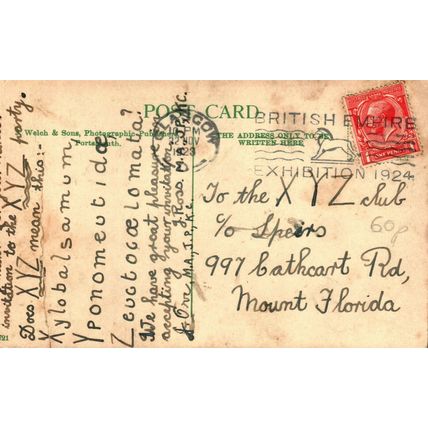 invitation to the XYZ party.
Does XYZ mean this:-
Xylobalsamum,
Yponomeutidae
Zeuctocœlomata?
We have great pleasure in
accepting your invitation
J. Ross, M.A., J.P., K.C.
POST CARD
Welch & Sons, Photographic Publishers,
Portsmouth.
THE ADDRESS ONLY TO BE
WRITTEN HERE
GLASGOW
NOV
1923
BRITISH EMPIRE
EXHIBITION 1924
To the XYZ club
c/o Speirs
997 Cathcart Rd,
Mount Florida
60p